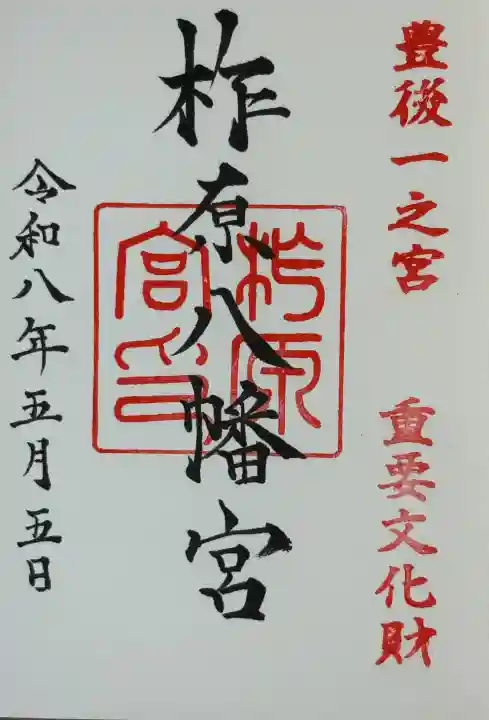 豊後一之宮 重要文化財
柞原八幡宮
柞原
宮印
令和八年五月五日